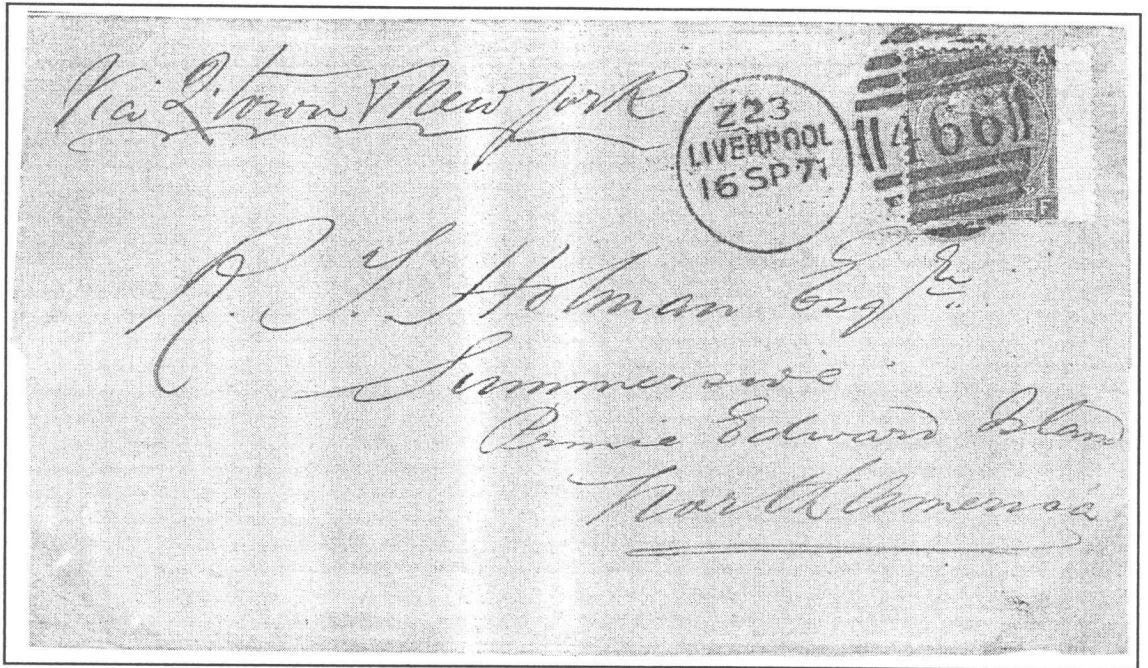 Via Q'town & New York
Z23
LIVERPOOL
16 SP 71
466
A
F
R. T. Holman Esqre
Summerside
Prince Edward Island
North America